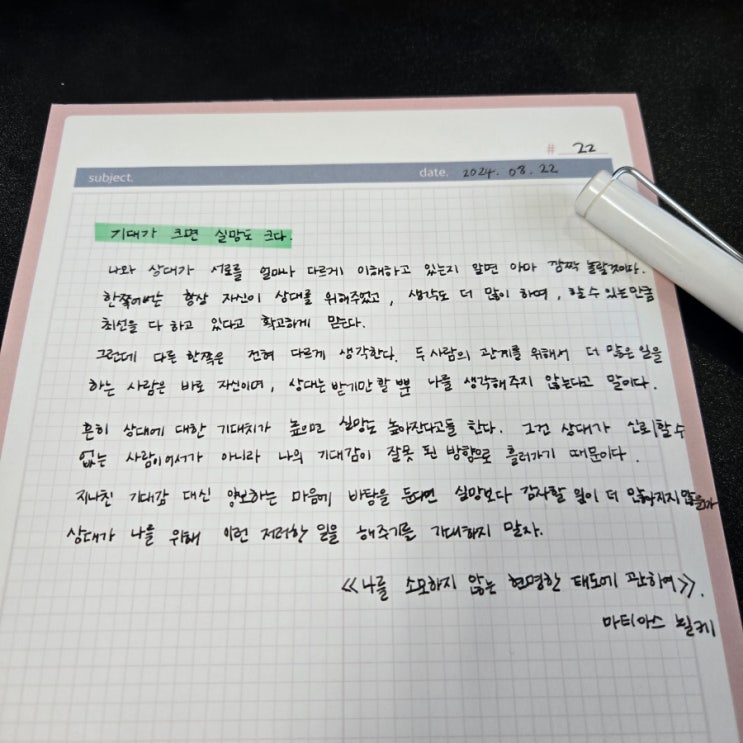 # 22
subject. date. 2024. 08. 22
기대가 크면 실망도 크다.
나와 상대가 서로를 얼마나 다르게 이해하고 있는지 알면 아마 깜짝 놀랄것이다.
한쪽에서는 항상 자신이 상대를 위해주었고, 생각도 더 많이 하며, 할 수 있는 만큼
최선을 다 하고 있다고 확고하게 믿는다.
그런데 다른 한쪽은 전혀 다르게 생각한다. 두 사람의 관계를 위해서 더 많은 일을
하는 사람은 바로 자신이며, 상대는 받기만 할 뿐 나를 생각해주지 않는다고 말이다.
흔히 상대에 대한 기대치가 높으면 실망도 높아진다고들 한다. 그건 상대가 신뢰할 수
없는 사람이어서가 아니라 나의 기대감이 잘못 된 방향으로 흘러가기 때문이다.
지나친 기대감 대신 양보하는 마음에 바탕을 둔다면 실망보다 감사할 일이 더 많아지지 않을까
상대가 나를 위해 이런 저러한 일을 해주기를 기대하지 말자.
≪나를 소모하지 않는 현명한 태도에 관하여≫.
마티아스 뇔케